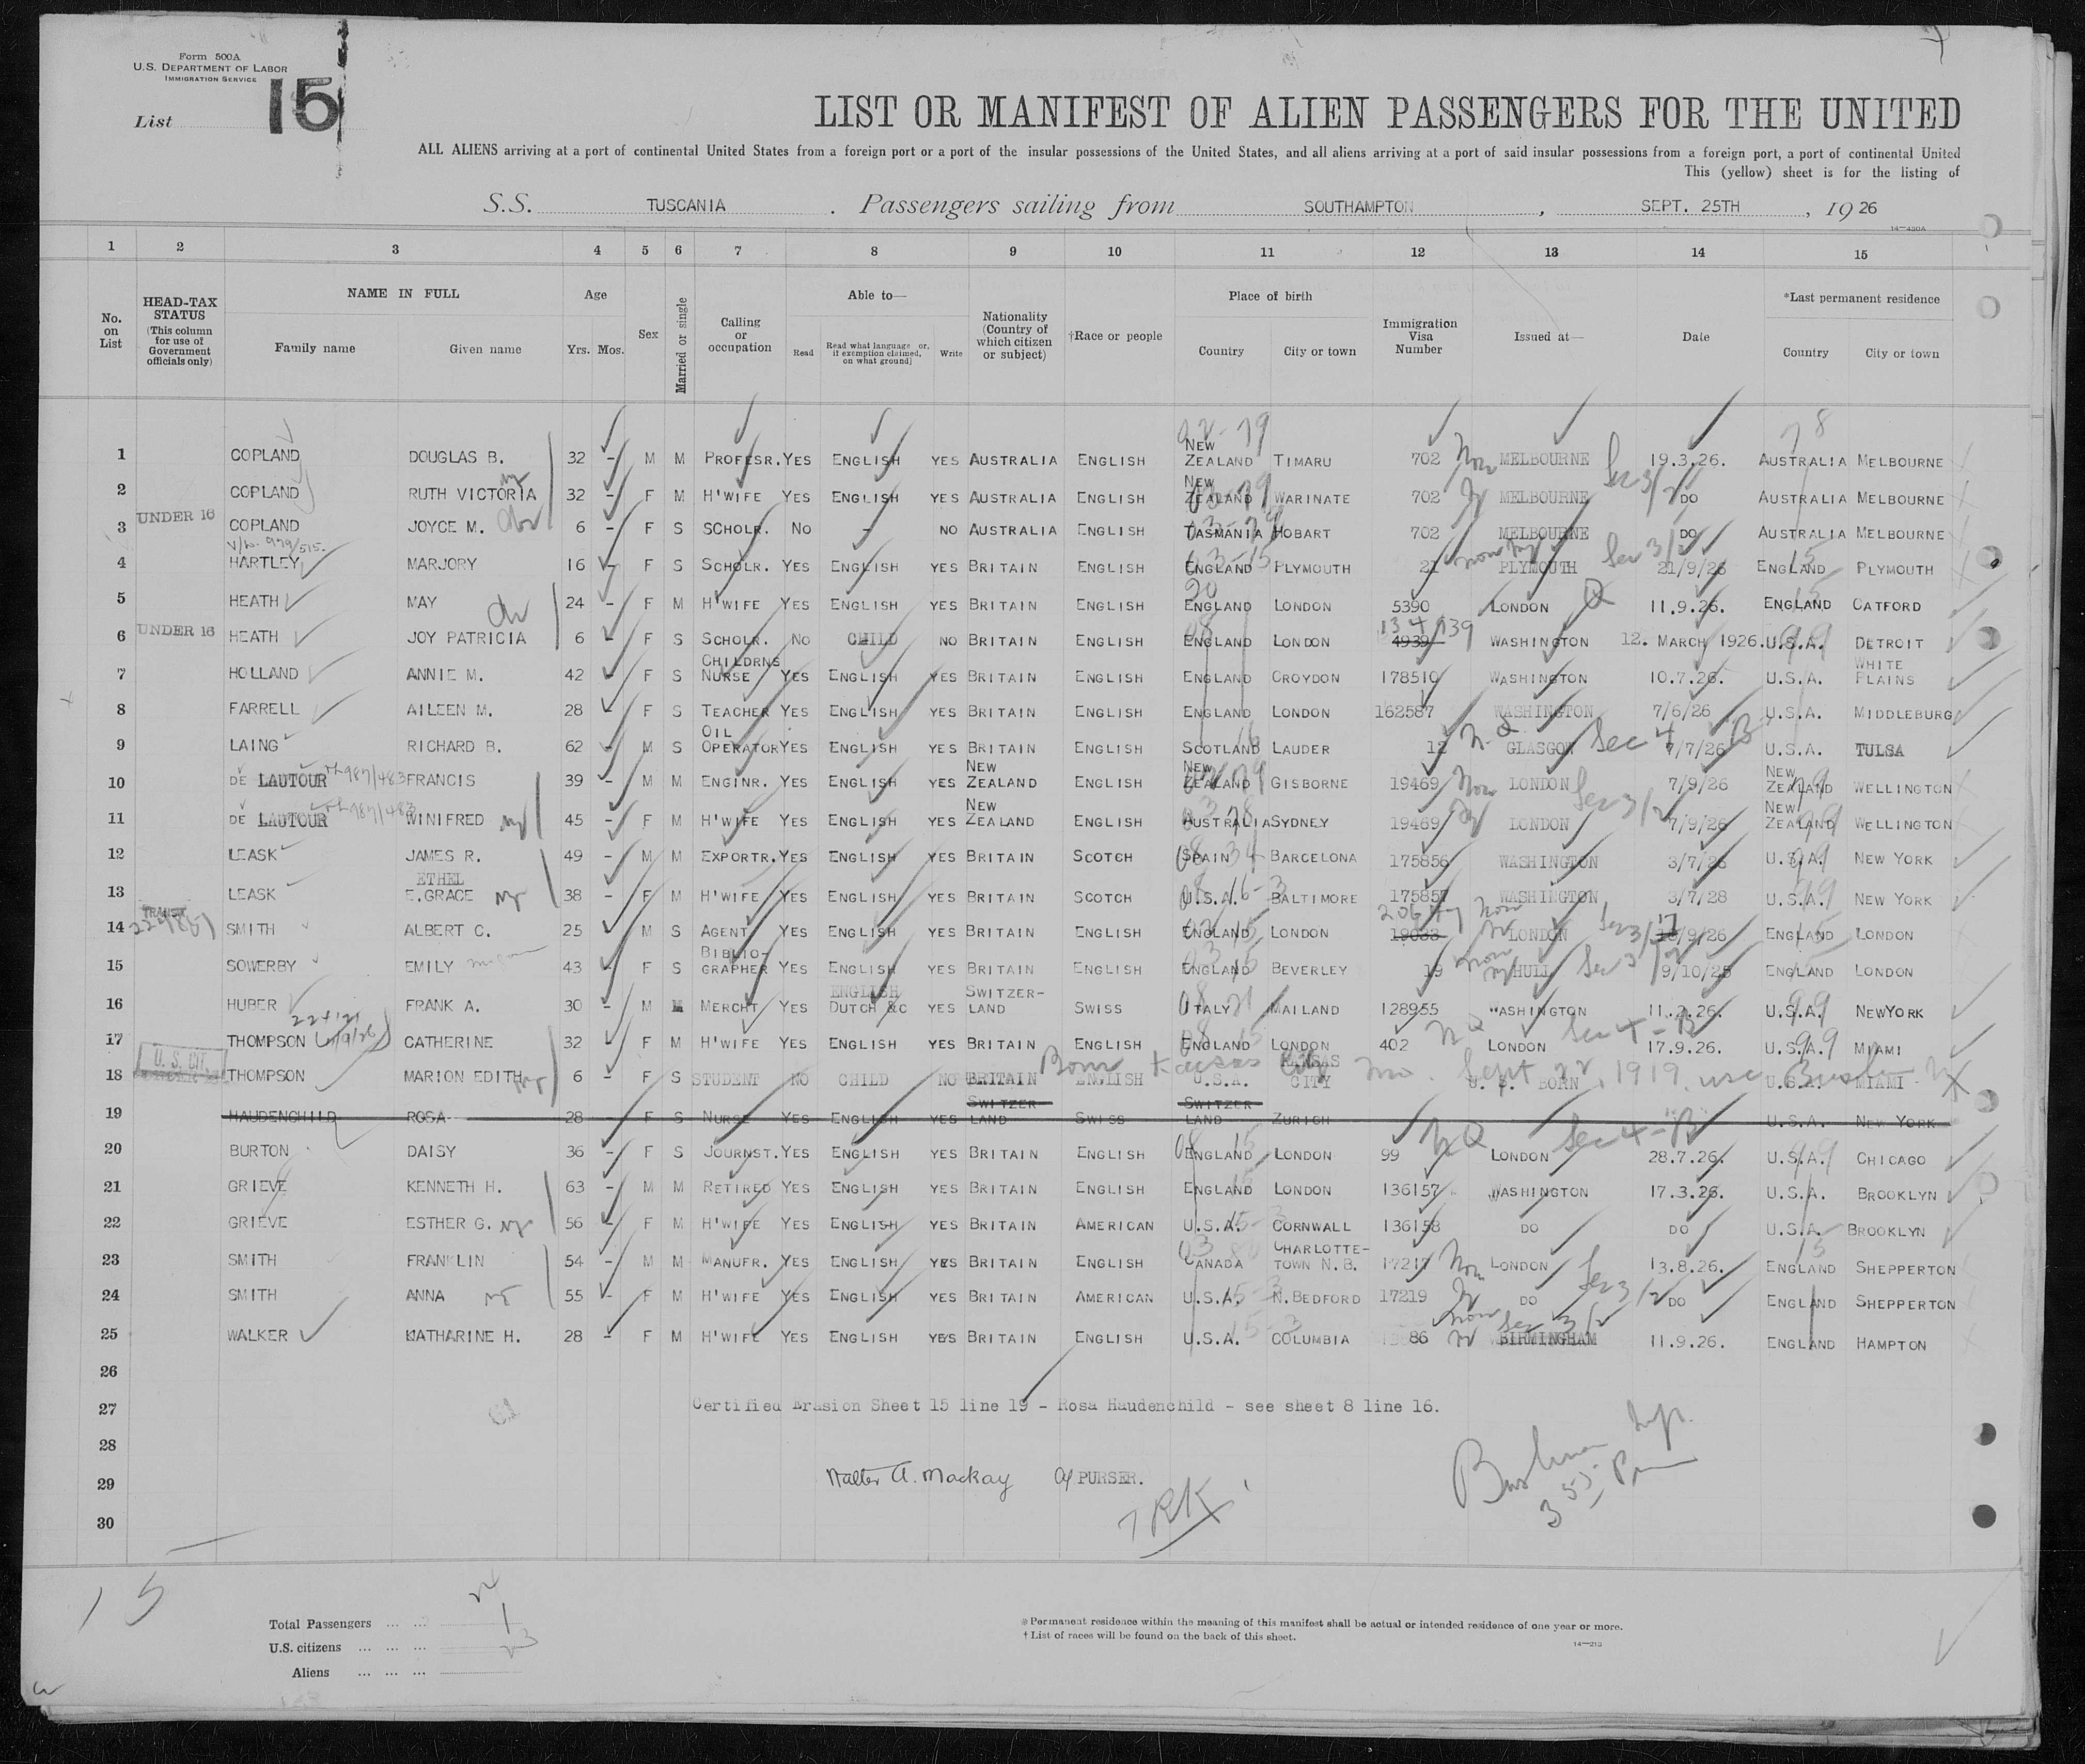 Form 500A
U.S. DEPARTMENT OF LABOR
IMMIGRATION SERVICE
List 15
LIST OR MANIFEST OF ALIEN PASSENGERS FOR THE UNITED
ALL ALIENS arriving at a port of continental United States from a foreign port or a port of the insular possessions of the United States, and all aliens arriving at a port of said insular possessions from a foreign port, a port of continental United
This (yellow) sheet is for the listing of
S.S. TUSCANIA . Passengers sailing from SOUTHAMPTON , SEPT. 25TH , 1926
14—430A
1 2 3 4 5 6 7 8 9 10 11 12 13 14 15
No. on List
HEAD-TAX STATUS (This column for use of Government officials only)
NAME IN FULL Family name Given name
Age Yrs. Mos.
Sex
Married or single
Calling or occupation
Able to— Read Read what language or, if exemption claimed, on what ground] Write
Nationality (Country of which citizen or subject)
†Race or people
Place of birth Country City or town
Immigration Visa Number
Issued at—
Date
*Last permanent residence Country City or town
1 COPLAND DOUGLAS B. 32 - M M PROFESR. YES ENGLISH YES AUSTRALIA ENGLISH NEW ZEALAND TIMARU 702 MELBOURNE 19.3.26. AUSTRALIA MELBOURNE
2 COPLAND RUTH VICTORIA 32 - F M H'WIFE YES ENGLISH YES AUSTRALIA ENGLISH NEW ZEALAND WARINATE 702 MELBOURNE DO AUSTRALIA MELBOURNE
3 UNDER 16 COPLAND JOYCE M. 6 - F S SCHOLR. NO - NO AUSTRALIA ENGLISH TASMANIA HOBART 702 MELBOURNE DO AUSTRALIA MELBOURNE
4 HARTLEY MARJORY 16 - F S SCHOLR. YES ENGLISH YES BRITAIN ENGLISH ENGLAND PLYMOUTH 21 PLYMOUTH 21/9/26 ENGLAND PLYMOUTH
5 HEATH MAY 24 - F M H'WIFE YES ENGLISH YES BRITAIN ENGLISH ENGLAND LONDON 5390 LONDON 11.9.26. ENGLAND CATFORD
6 UNDER 16 HEATH JOY PATRICIA 6 - F S SCHOLR. NO CHILD NO BRITAIN ENGLISH ENGLAND LONDON 4939 134939 WASHINGTON 12. MARCH 1926. U.S.A. DETROIT
7 HOLLAND ANNIE M. 42 - F S CHILDRNS NURSE YES ENGLISH YES BRITAIN ENGLISH ENGLAND CROYDON 178510 WASHINGTON 10.7.26. U.S.A. WHITE PLAINS
8 FARRELL AILEEN M. 28 - F S TEACHER YES ENGLISH YES BRITAIN ENGLISH ENGLAND LONDON 162587 WASHINGTON 7/6/26 U.S.A. MIDDLEBURG
9 LAING RICHARD B. 62 - M S OIL OPERATOR YES ENGLISH YES BRITAIN ENGLISH SCOTLAND LAUDER 12 GLASGOW Sec 4 B 7/7/26 U.S.A. TULSA
10 DE LAUTOUR FRANCIS 39 - M M ENGINR. YES ENGLISH YES NEW ZEALAND ENGLISH NEW ZEALAND GISBORNE 19469 LONDON 7/9/26 NEW ZEALAND WELLINGTON
11 DE LAUTOUR WINIFRED 45 - F M H'WIFE YES ENGLISH YES NEW ZEALAND ENGLISH AUSTRALIA SYDNEY 19469 LONDON 7/9/26 NEW ZEALAND WELLINGTON
12 LEASK JAMES R. 49 - M M EXPORTR. YES ENGLISH YES BRITAIN SCOTCH SPAIN BARCELONA 175856 WASHINGTON 3/7/26 U.S.A. NEW YORK
13 LEASK ETHEL E.GRACE 38 - F M H'WIFE YES ENGLISH YES BRITAIN SCOTCH U.S.A. BALTIMORE 175857 WASHINGTON 3/7/28 U.S.A. NEW YORK
14 TRANSIT SMITH ALBERT C. 25 M S AGENT YES ENGLISH YES BRITAIN ENGLISH ENGLAND LONDON 19033 LONDON 17/9/26 ENGLAND LONDON
15 SOWERBY EMILY 43 - F S BIBLIO-GRAPHER YES ENGLISH YES BRITAIN ENGLISH ENGLAND BEVERLEY 19 HULL 9/10/25 ENGLAND LONDON
16 HUBER FRANK A. 30 - M M MERCHT YES ENGLISH DUTCH &C YES SWITZER-LAND SWISS ITALY MAILAND 128955 WASHINGTON 11.2.26. U.S.A. NEWYORK
17 THOMPSON CATHERINE 32 F M H'WIFE YES ENGLISH YES BRITAIN ENGLISH ENGLAND LONDON 402 LONDON 17.9.26. U.S.A. MIAMI
18 U.S. CIT. THOMPSON MARION EDITH 6 - F S STUDENT NO CHILD NO BRITAIN ENGLISH U.S.A. KANSAS CITY U.S. BORN U.S.A. MIAMI
Born Kansas City Mo. Sept 22, 1919
19 HAUDENCHILD ROSA 28 F S NURSE YES ENGLISH YES SWITZER LAND SWISS SWITZER LAND ZURICH U.S.A. NEW YORK
20 BURTON DAISY 36 - F S JOURNST. YES ENGLISH YES BRITAIN ENGLISH ENGLAND LONDON 99 LONDON 28.7.26. U.S.A. CHICAGO
21 GRIEVE KENNETH H. 63 - M M RETIRED YES ENGLISH YES BRITAIN ENGLISH ENGLAND LONDON 136157 WASHINGTON 17.3.26. U.S.A. BROOKLYN
22 GRIEVE ESTHER G. 56 - F M H'WIFE YES ENGLISH YES BRITAIN AMERICAN U.S.A. CORNWALL 136158 DO DO U.S.A. BROOKLYN
23 SMITH FRANKLIN 54 - M M MANUFR. YES ENGLISH YES BRITAIN ENGLISH CANADA CHARLOTTE-TOWN N.B. 17217 LONDON 13.8.26. ENGLAND SHEPPERTON
24 SMITH ANNA 55 - F M H'WIFE YES ENGLISH YES BRITAIN AMERICAN U.S.A. N.BEDFORD 17219 DO DO ENGLAND SHEPPERTON
25 WALKER KATHARINE H. 28 - F M H'WIFE YES ENGLISH YES BRITAIN ENGLISH U.S.A. COLUMBIA 86 BIRMINGHAM 11.9.26. ENGLAND HAMPTON
26
27 Certified Erasion Sheet 15 line 19 - Rosa Haudenchild - see sheet 8 line 16.
28
29 Walter A. Mackay PURSER.
30
15
Total Passengers ... ...
U.S. citizens ... ... ... 1
Aliens ... ... ... 23
* Permanent residence within the meaning of this manifest shall be actual or intended residence of one year or more.
† List of races will be found on the back of this sheet.
14—213